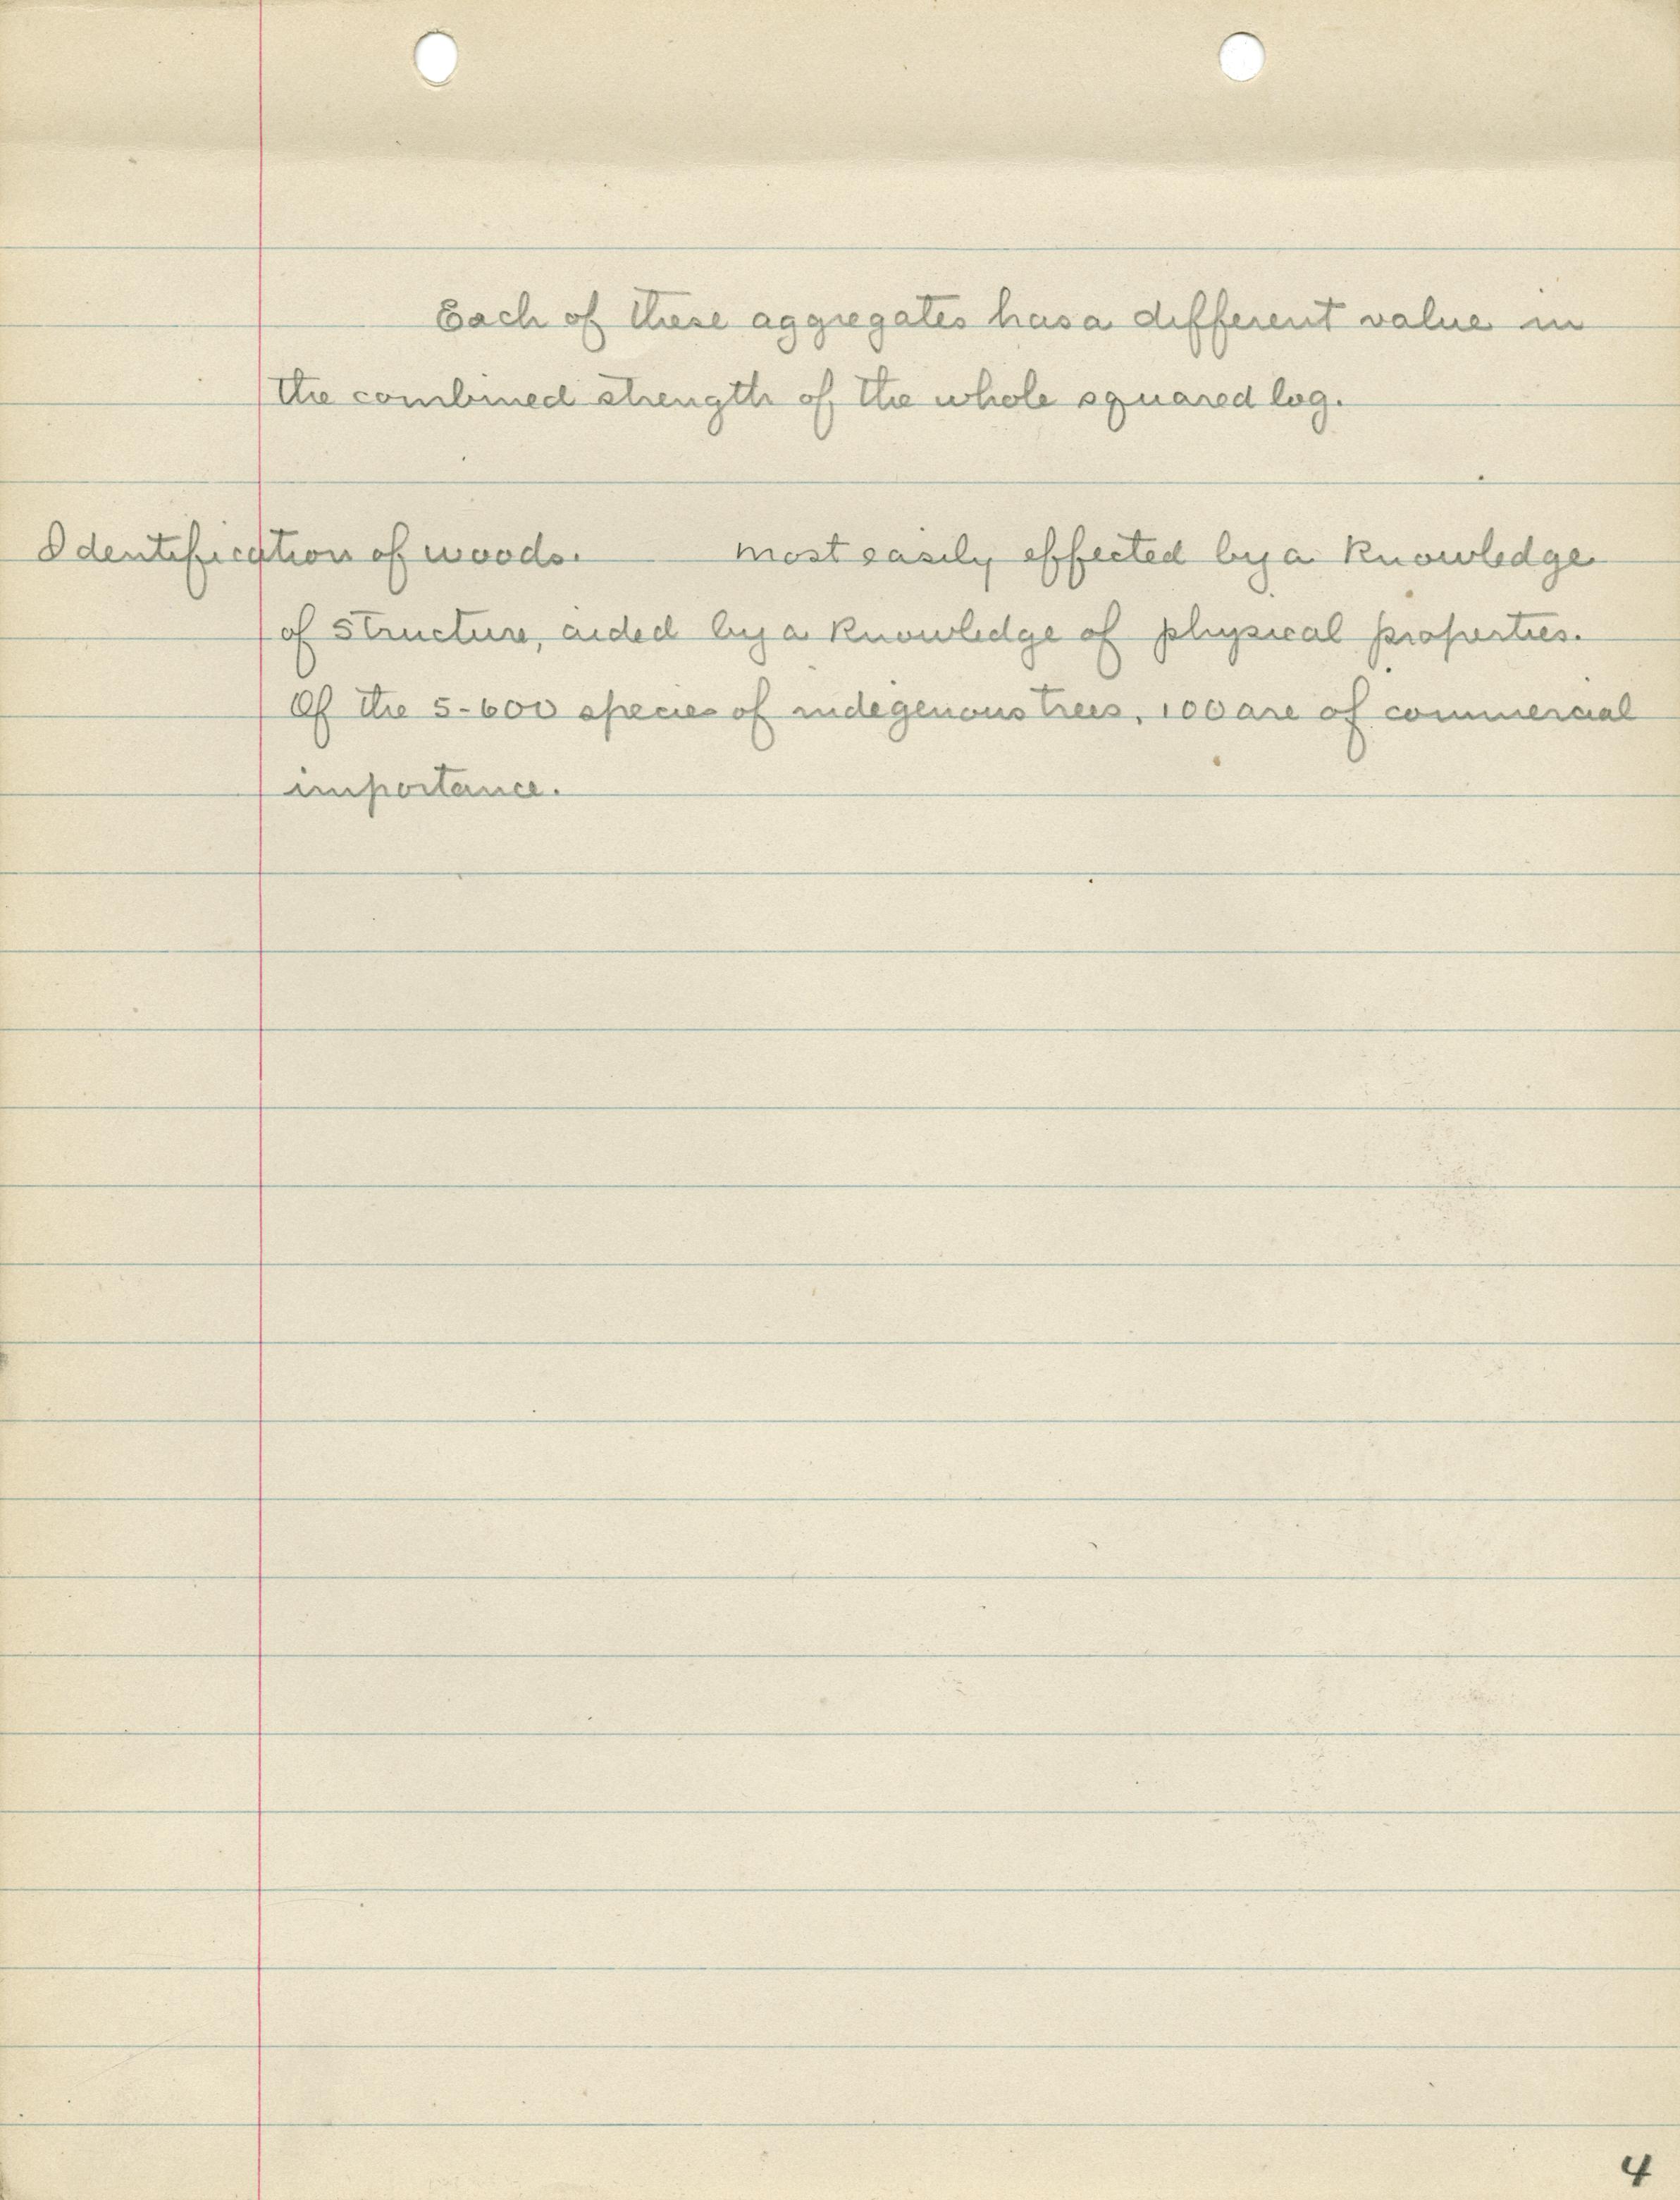 Each of these aggregates has a different value in
the combined strength of the whole squared log.
Identification of woods. most easily effected by a knowledge
of structure, aided by a knowledge of physical properties.
Of the 5-600 species of indegenous trees, 100 are of commercial
importance.
4